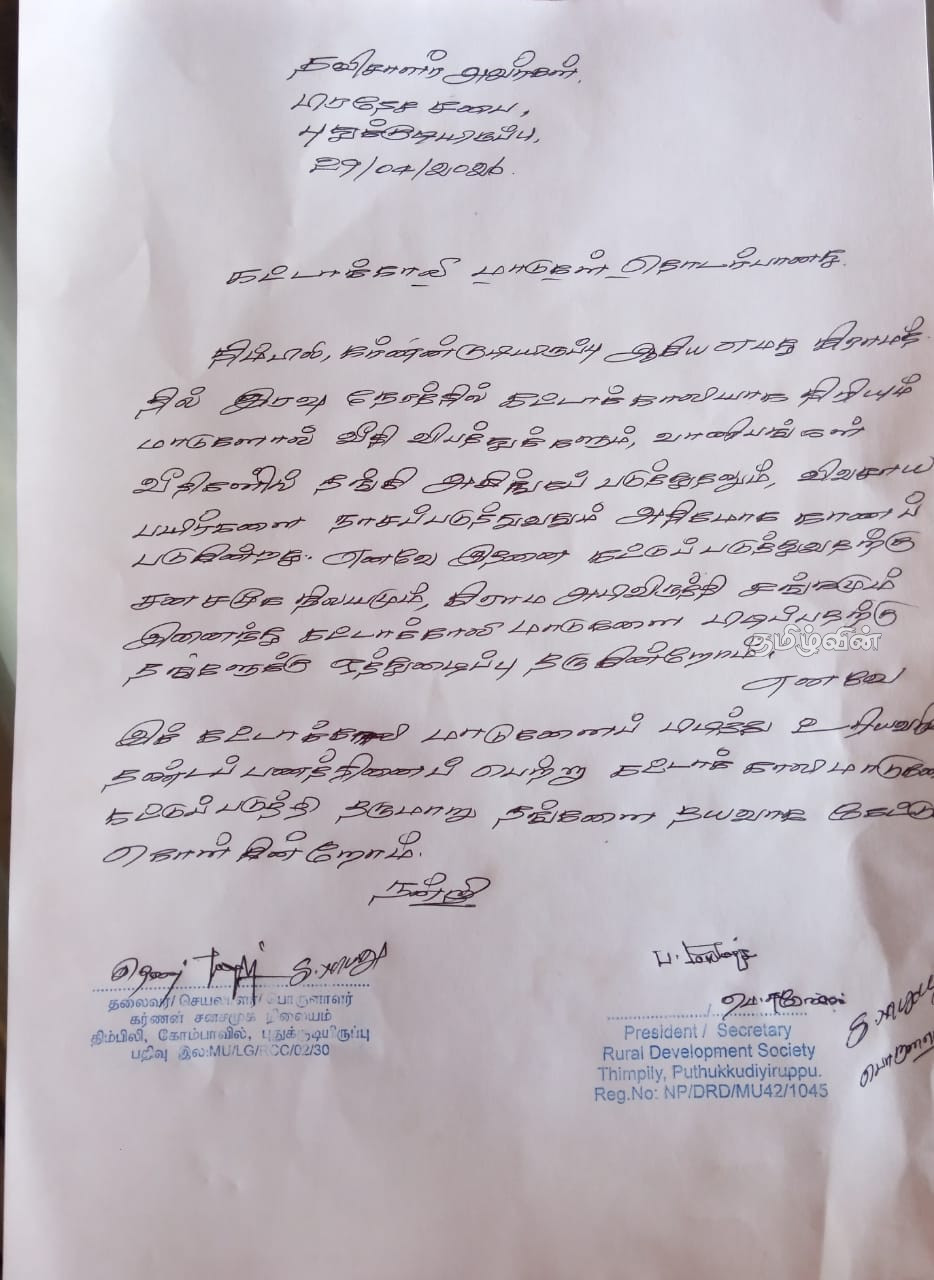 தவிசாளர் அவர்கள்,
பிரதேச சபை,
புதுக்குடியிருப்பு,
29/04/2026.
கட்டாக்காலி மாடுகள் தொடர்பானது.
திம்பிலி, கர்ணன்குடியிருப்பு ஆகிய எமது கிராமத்
தில் இரவு நேரத்தில் கட்டாக்காலியாக திரியும்
மாடுகளால் வீதி விபத்துக்களும், வாணிபங்கள்
வீதிகளில் தங்கி அசிங்கப் படுத்துதலும், விவசாய
பயிர்களை நாசப்படுத்துவதும் அதிகமாக காணப்
படுகின்றது. எனவே இதனை கட்டுப் படுத்துவதற்கு
சனசமூக நிலையமும், கிராம அபிவிருத்தி சங்கமும்
இணைந்து கட்டாக்காலி மாடுகளை பிடிப்பதற்கு
தமிழ்வின்
தங்களுக்கு ஒத்துழைப்பு தருகின்றோம்.
எனவே
இக் கட்டாக்காலி மாடுகளைப் பிடித்து
தண்டப் பணத்தினைப் பெற்று கட்டாக் காலி
கட்டுப் படுத்தி தருமாறு தங்களை தயவாக கேட்டு
கொள்கின்றோம்.
நன்றி
தலைவர்/ செயலாளர்/ பொருளாளர்
கர்ணன் சனசமூக நிலையம்
திம்பிலி, கோம்பாவில், புதுக்குடியிருப்பு
பதிவு இல:MU/LG/RCC/02/30
President / Secretary
Rural Development Society
Thimpily, Puthukkudiyiruppu.
Reg.No: NP/DRD/MU42/1045